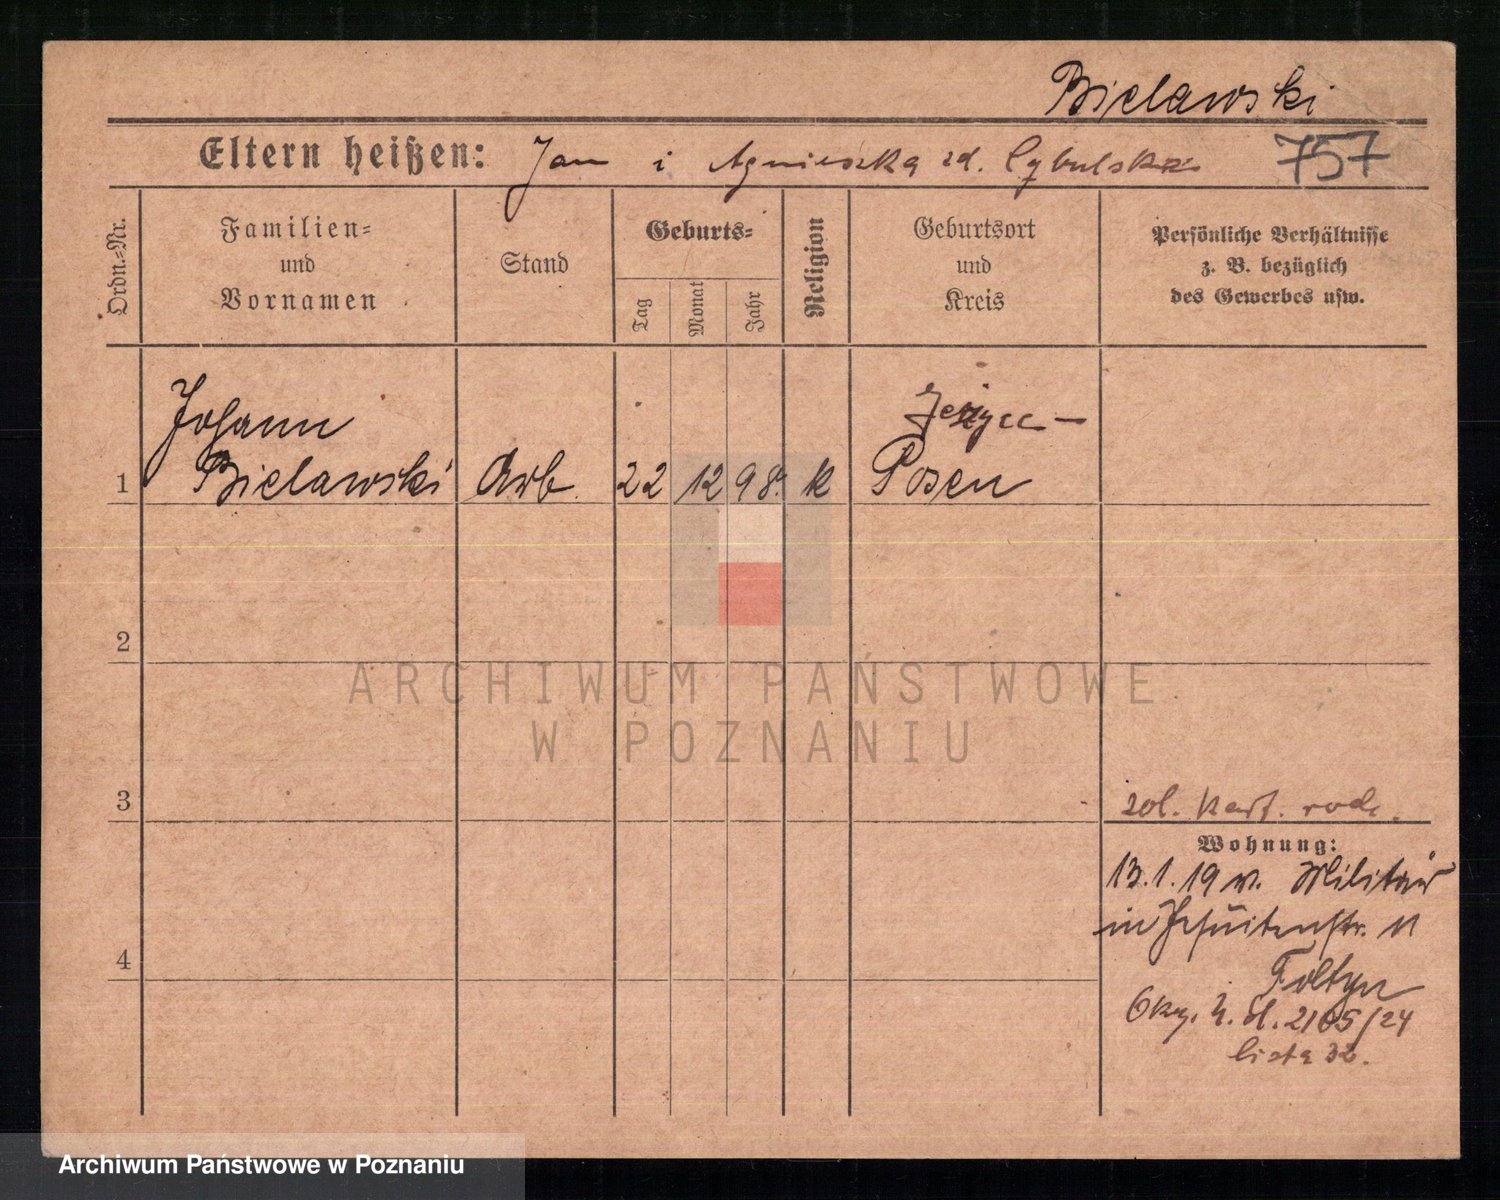 Bielawski
Eltern heißen: Jan i Agnieszka zd. Cybulska
757
Ordn.-Nr.
Familien-
und
Vornamen
Stand
Geburts-
Tag
Monat
Jahr
Religion
Geburtsort
und
Kreis
Persönliche Verhältnisse
z. B. bezüglich
des Gewerbes usw.
Johann
Jeżyce –
1 Bielawski Arb. 22 12 98. k Posen
2
ARCHIWUM PAŃSTWOWE
W POZNANIU
3
zob. kart. rodz.
Wohnung:
13.1.19 v. Militär
in Jesuitenstr. 11
4
Foltyn
2105/24
lista 32.
Archiwum Państwowe w Poznaniu